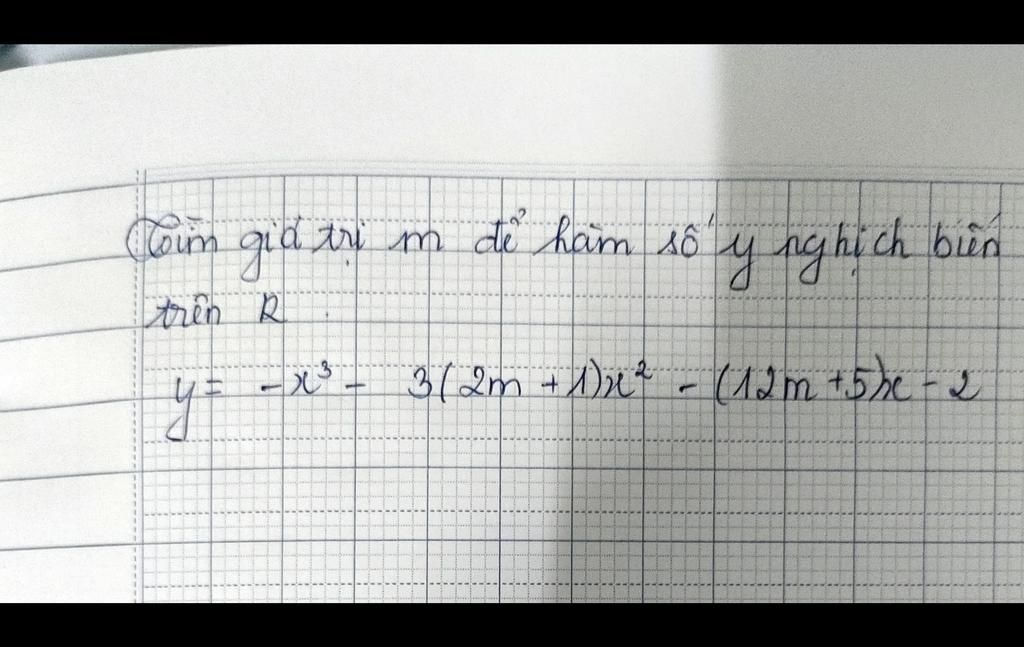 Tìm giá trị m để hàm số y nghịch biến
trên R.
y = -x³ - 3(2m + 1)x² - (12m + 5)x - 2